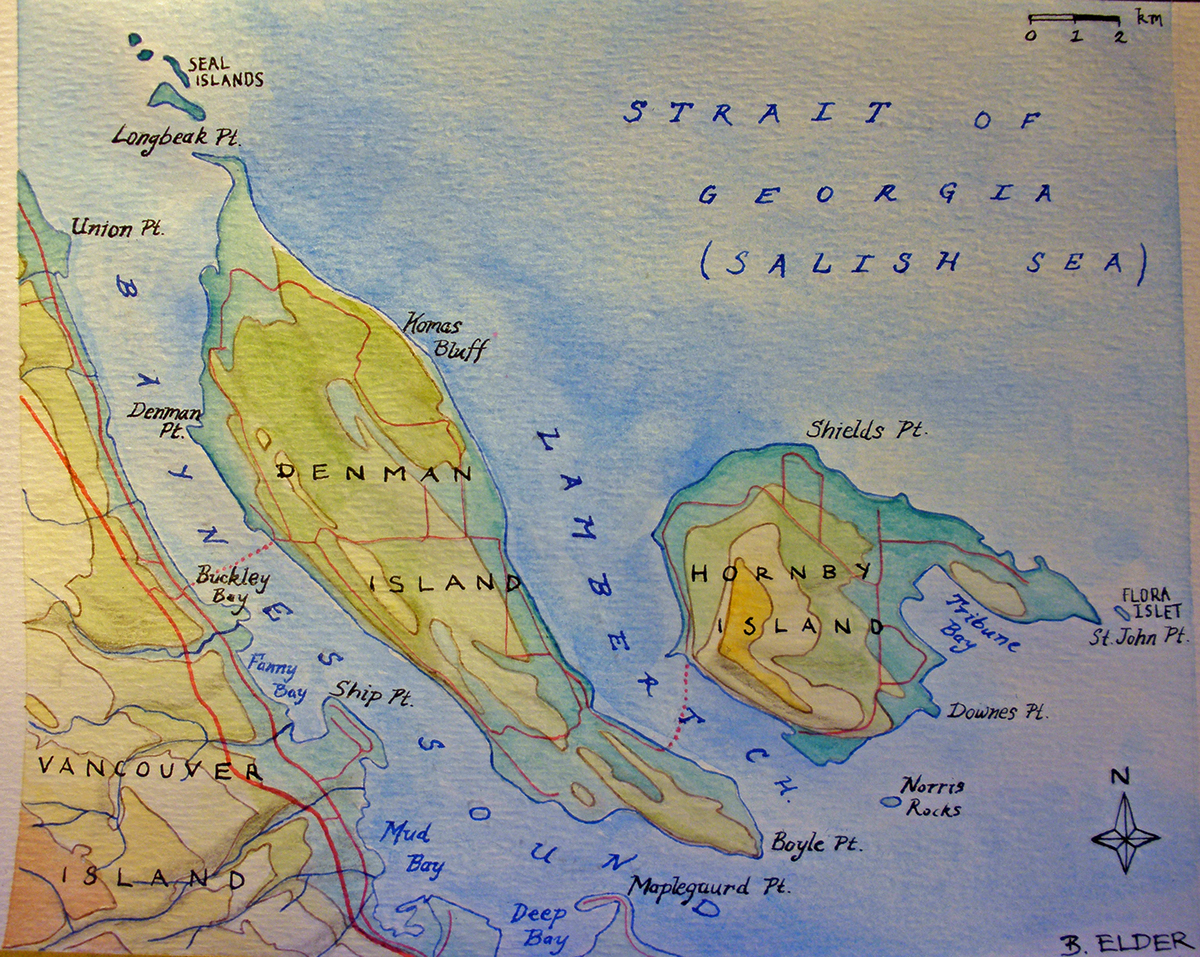 km
0 1 2
SEAL
ISLANDS
Longbeak Pt.
STRAIT OF
GEORGIA
(SALISH SEA)
Union Pt.
BAYNES SOUND
Komas
Bluff
Denman
Pt.
LAMBERT CH.
Shields Pt.
DENMAN
ISLAND
HORNBY
ISLAND
Buckley
Bay
Tribune
Bay
FLORA
ISLET
St. John Pt.
Fanny
Bay
Ship Pt.
Downes Pt.
VANCOUVER
ISLAND
Norris
Rocks
N
Mud
Bay
Boyle Pt.
Maplegaurd Pt.
Deep
Bay
B. ELDER